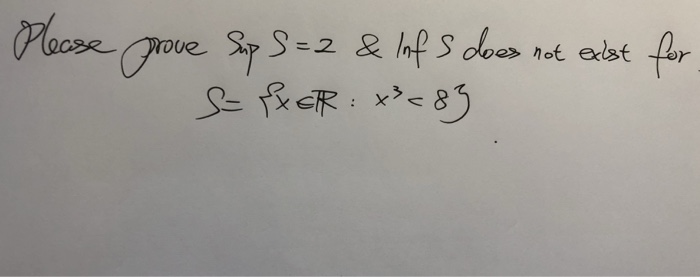 Please prove Sup S = 2 & Inf S does not exist for
S = {x ∈ ℝ : x³ < 8}